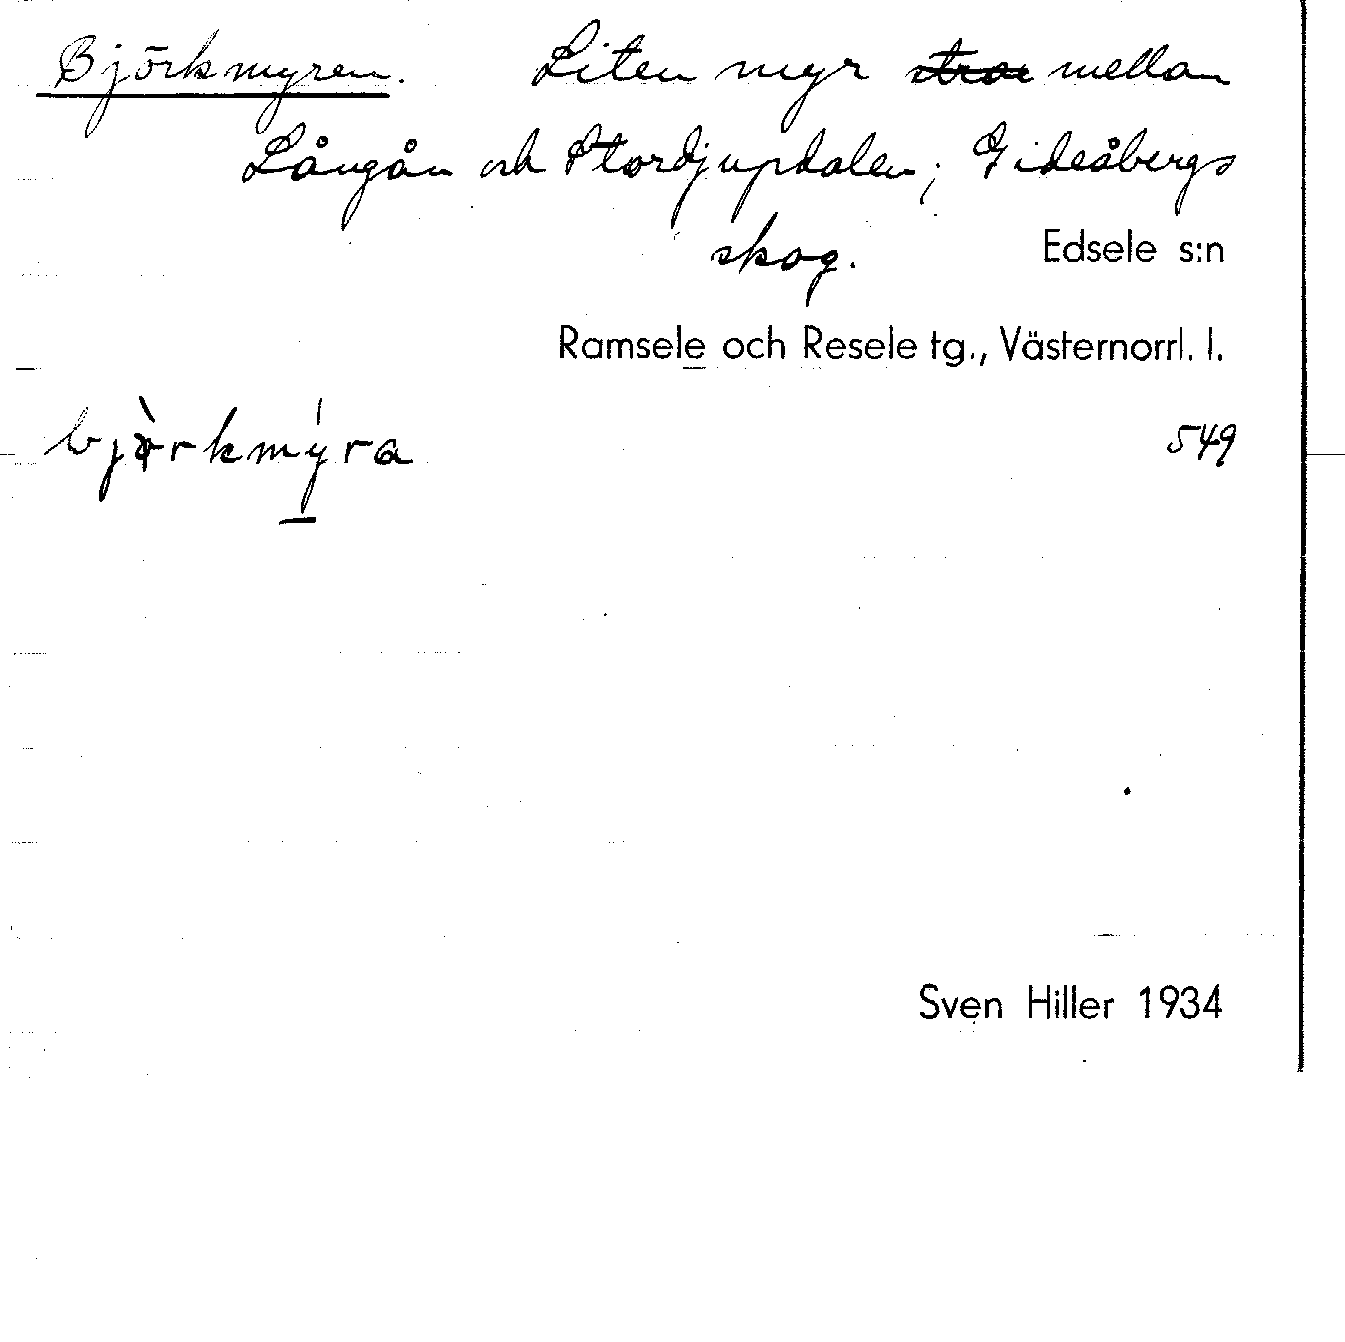 Björkmyren. Liten myr mellan
Långån och Stordjupdalen; Gideåbergs
skog. Edsele s:n
Ramsele och Resele tg., Västernorrl. l.
bjòrkmýra 549
Sven Hiller 1934